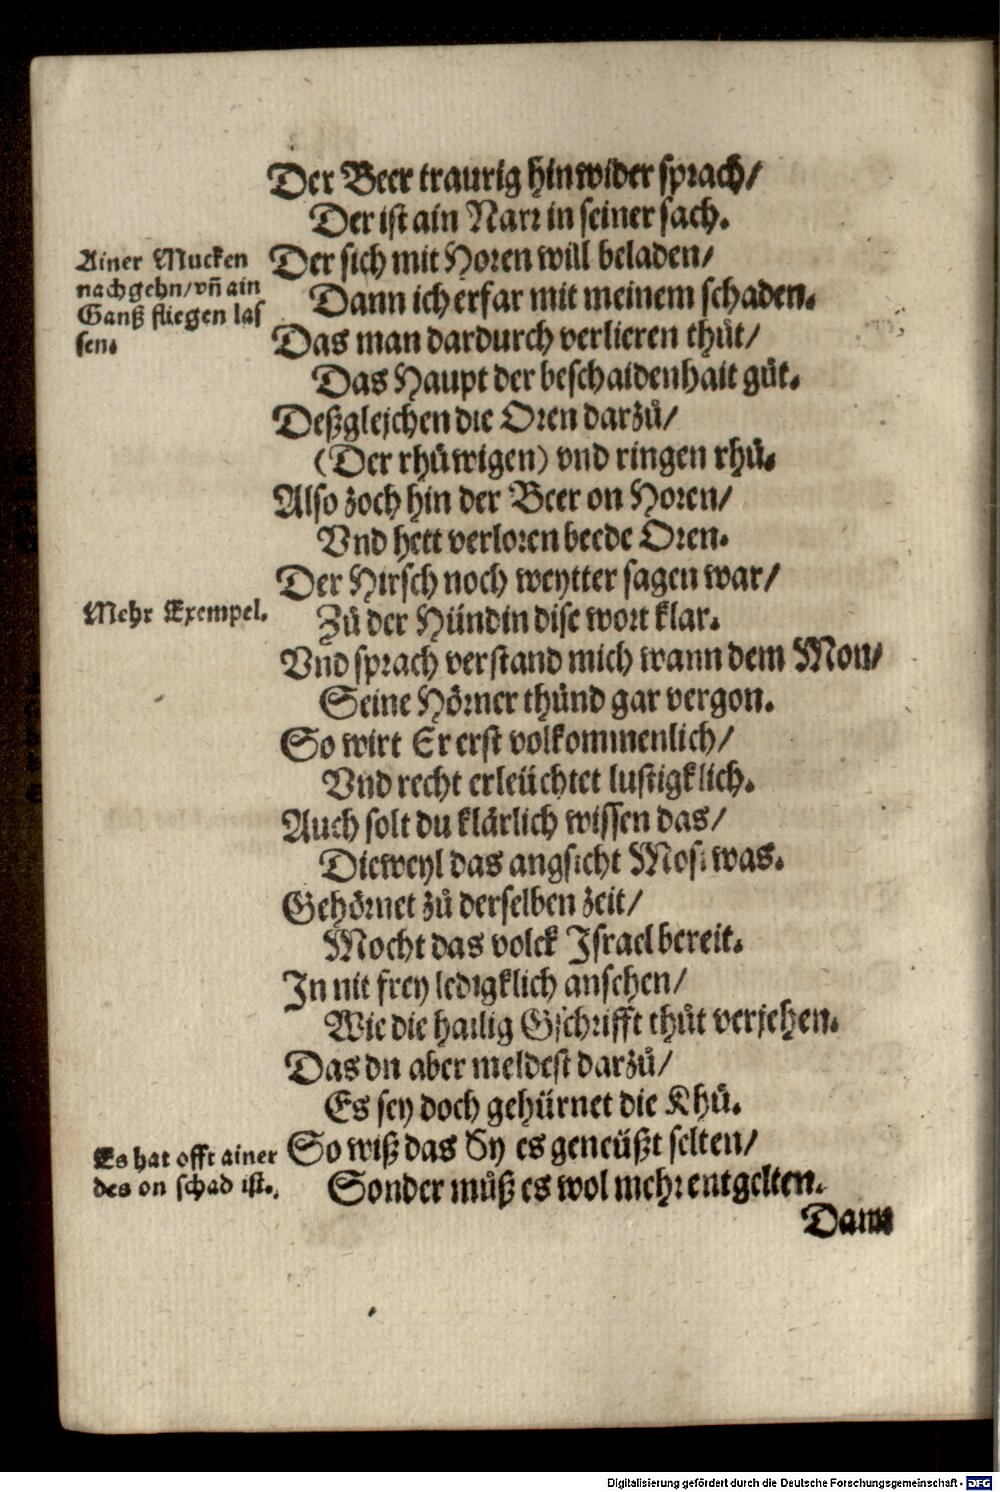 Der Beer traurig hinwider sprach/
Der ist ain Narr in seiner sach.
Ainer Mucken
nachgehn/vn̄ ain
Ganß fliegen las
sen.
Der sich mit Horen will beladen/
Dann ich erfar mit meinem schaden.
Das man dardurch verlieren thůt/
Das Haupt der beschaidenhait gůt.
Deßgleichen die Oren darzů/
(Der rhůwigen) vnd ringen rhů.
Also zoch hin der Beer on Horen/
Vnd hett verloren beede Oren.
Der Hirsch noch weytter sagen war/
Mehr Exempel.
Zů der Hündin dise wort klar.
Vnd sprach verstand mich wann dem Mon/
Seine Hörner thůnd gar vergon.
So wirt Er erst volkommenlich/
Vnd recht erleüchtet lustigklich.
Auch solt du klärlich wissen das/
Dieweyl das angsicht Mosi was.
Gehörnet zů derselben zeit/
Mocht das volck Israel bereit.
In nit frey ledigklich ansehen/
Wie die hailig Gschrifft thůt verjehen.
Das dn aber meldest darzů/
Es sey doch gehürnet die Khů.
Es hat offt ainer
des on schad ist.
So wiß das Sy es geneüßt selten/
Sonder můß es wol mehr entgelten.
Dann
Digitalisierung gefördert durch die Deutsche Forschungsgemeinschaft - DFG